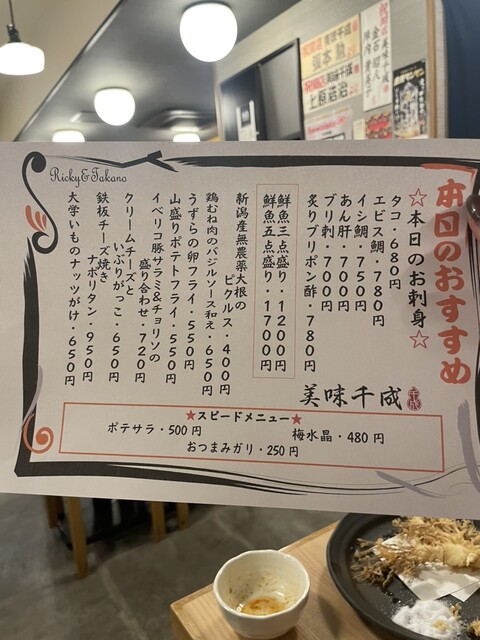 本日のおすすめ
☆本日のお刺身☆
タコ・680円
エビス鯛・780円
イシ鯛・750円
あん肝・700円
ブリ刺・700円
炙りブリポン酢・780円
鮮魚三点盛り・1200円
鮮魚五点盛り・1700円
新潟産無農薬大根の
ピクルス・400円
鶏むね肉のバジルソース和え・650円
うずらの卵フライ・550円
山盛りポテトフライ・550円
イベリコ豚サラミ&チョリソの
盛り合わせ・720円
クリームチーズと
いぶりがっこ・650円
鉄板チーズ焼き
ナポリタン・950円
大学いものナッツがけ・650円
Ricky&Takano
美味千成
千成
★スピードメニュー★
ポテサラ・500円
梅水晶・480円
おつまみガリ・250円
美味千成
上原浩治
美味千成